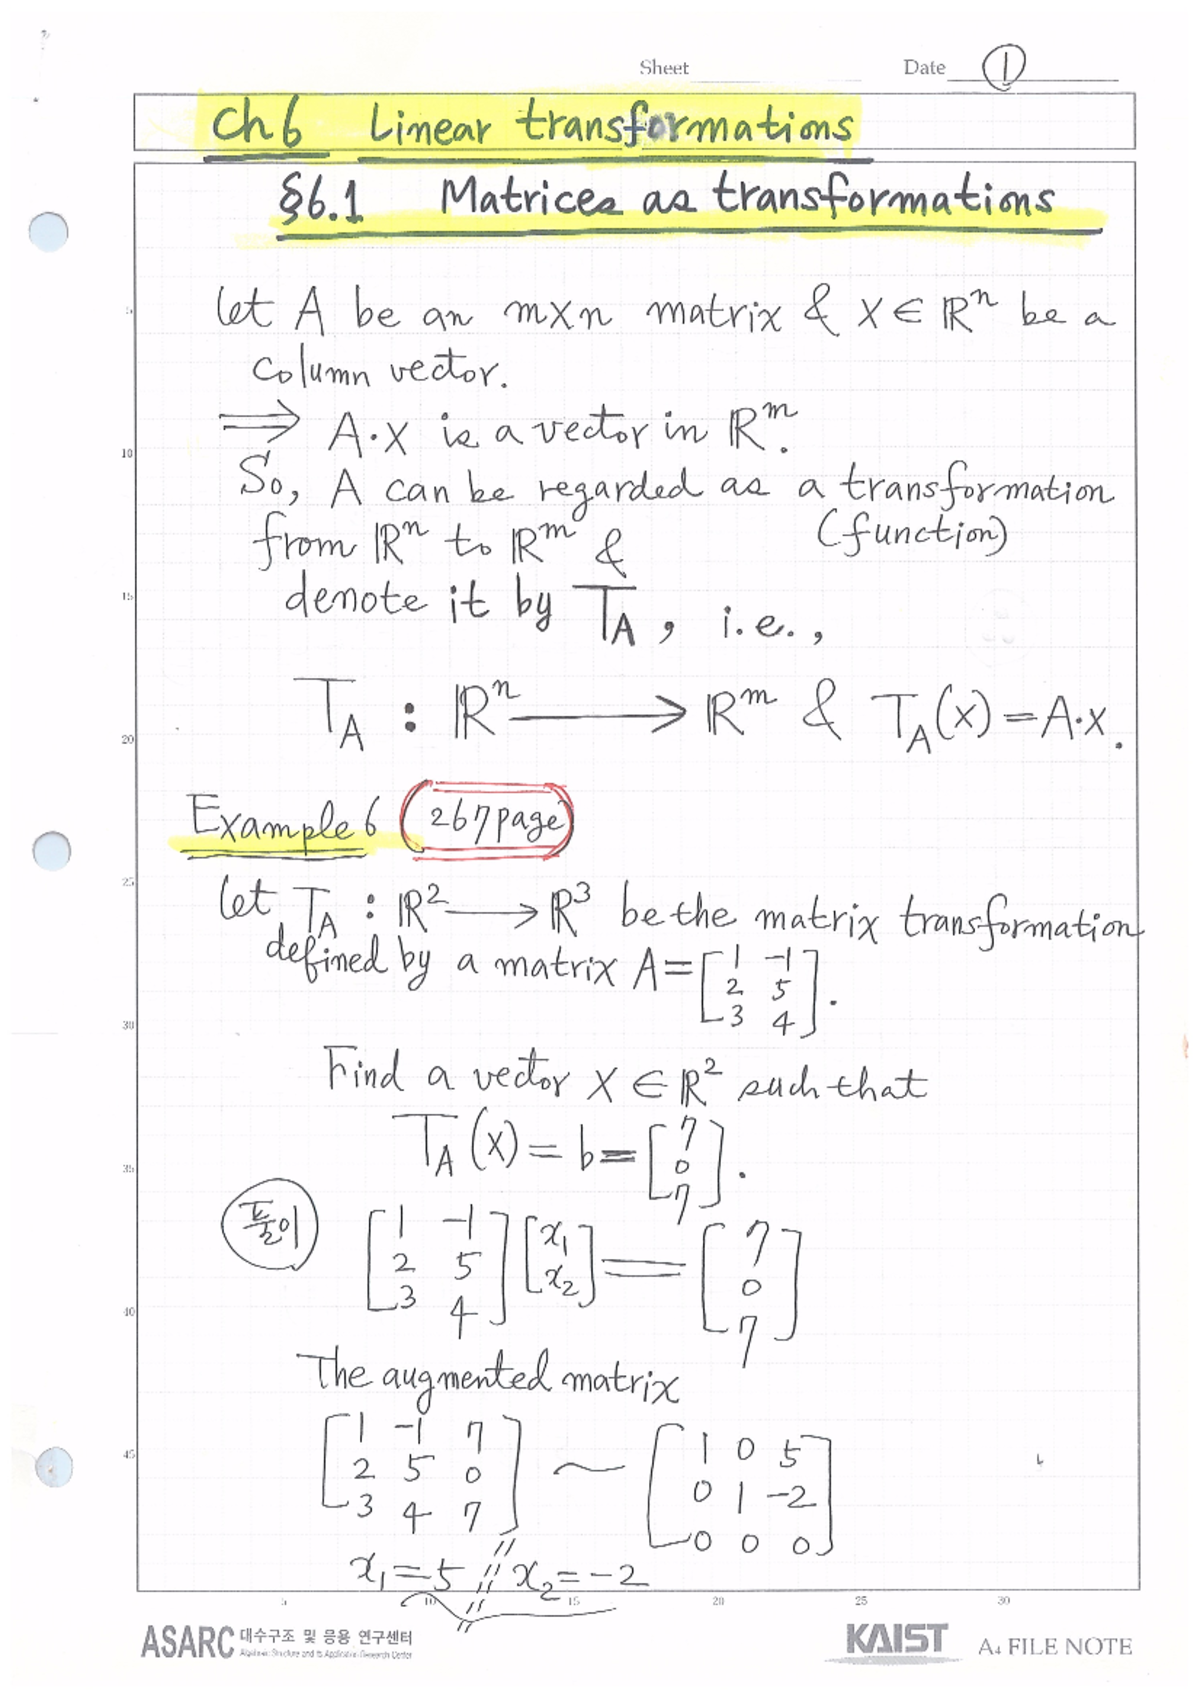 Sheet Date ①
Ch6 Linear transformations
§6.1 Matrices as transformations
Let A be an m×n matrix & x∈ℝⁿ be a
column vector.
⟹ A·x is a vector in ℝᵐ.
So, A can be regarded as a transformation
(function)
from ℝⁿ to ℝᵐ &
denote it by T_A, i.e.,
T_A : ℝⁿ ⟶ ℝᵐ & T_A(x) = A·x.
Example 6 (267page)
Let T_A : ℝ² ⟶ ℝ³ be the matrix transformation
defined by a matrix A = [1 -1
2 5
3 4].
Find a vector x∈ℝ² such that
T_A(x) = b = [7
0
7].
풀이
[1 -1 [x₁ = [7
2 5 x₂] 0
3 4] 7]
The augmented matrix
[1 -1 7 ~ [1 0 5
2 5 0 0 1 -2
3 4 7] 0 0 0]
x₁ = 5 // x₂ = -2
5 10 15 20 25 30
ASARC 대수구조 및 응용 연구센터
Algebraic Structure and its Application Research Center
KAIST A4 FILE NOTE